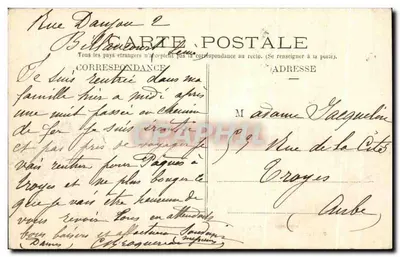 Rue Danjou 2
Billancourt Seine
CARTE POSTALE
Tous les pays étrangers n'acceptent pas la correspondance au recto. (Se renseigner à la poste).
CORRESPONDANCE
ADRESSE
Je suis rentré dans ma
famille hier a midi après
une nuit passée en chemin
de fer Je suis
et pas près de voyager Je
vais rentrer pour Pâques à
Troyes et ne plus bouger Ce
que je vais être heureux de
vous revoir Tous en attendant
bons baisers et affectueux
(Dames)
Madame Jacquelin
99 Rue de la Cité
Troyes
Aube